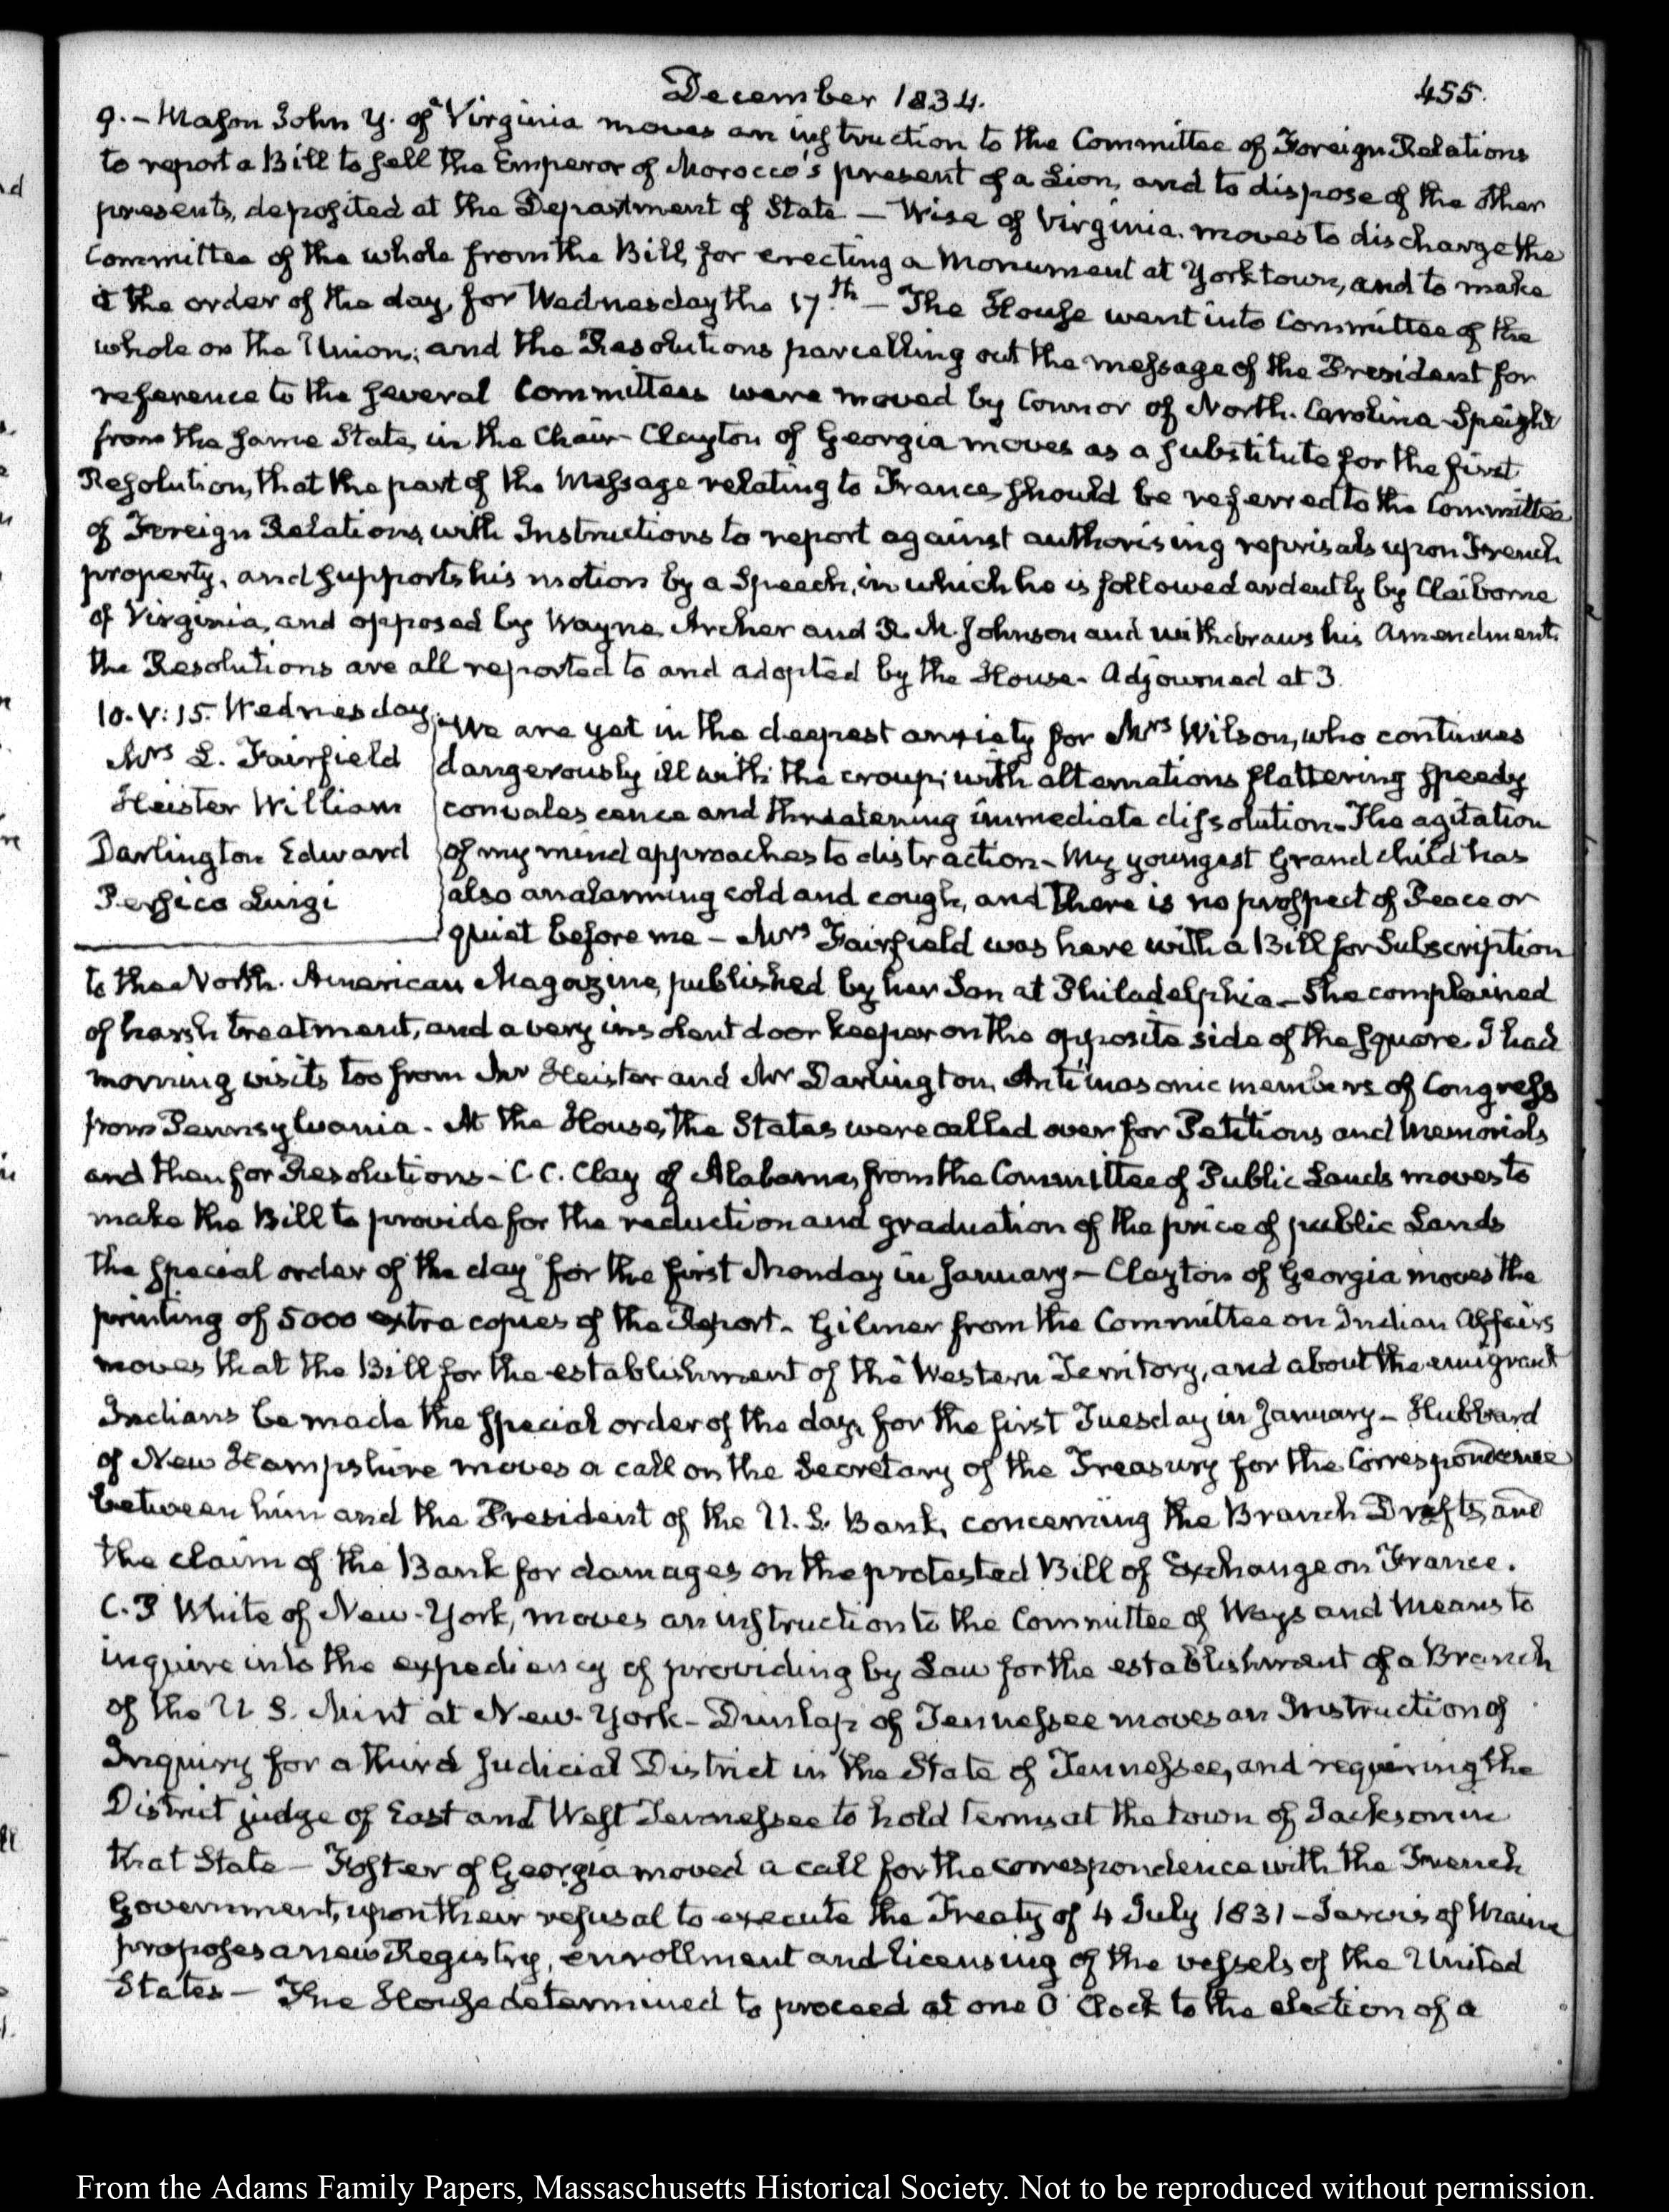 December 1834.
455.
9. – Mason John Y. of Virginia moves an instruction to the Committee of Foreign Relations
to report a Bill to sell the Emperor of Morocco's present of a Lion, and to dispose of the other
presents, deposited at the Department of State – Wise of Virginia moves to discharge the
Committee of the whole from the Bill, for erecting a Monument at Yorktown, and to make
it the order of the day, for Wednesday the 17th. – The House went into Committee of the
whole on the Union; and the Resolutions parcelling out the message of the President for
reference to the several Committees were moved by Connor of North-Carolina – Speight
from the same State, in the Chair – Clayton of Georgia moves as a substitute for the first
Resolution, that the part of the Message relating to France, should be referred to the Committee
of Foreign Relations, with Instructions to report against authorising reprisals upon French
property, and supports his motion by a Speech, in which he is followed ardently by Claiborne
of Virginia, and opposed by Wayne, Archer and R. M. Johnson and withdraws his Amendment.
the Resolutions are all reported to and adopted by the House – Adjourned at 3.
10. V: 15. Wednesday.
Mrs L. Fairfield
Heister William
Darlington Edward
Persico Luigi
We are yet in the deepest anxiety for Mrs Wilson, who continues
dangerously ill with the croup; with alternations flattering speedy
convalescence and threatening immediate dissolution – The agitation
of my mind approaches to distraction – My youngest Grandchild has
also an alarming cold and cough, and there is no prospect of Peace or
quiet before me – Mrs Fairfield was here with a Bill for Subscription
to the North-American Magazine, published by her Son at Philadelphia – She complained
of harsh treatment, and a very insolent door keeper on the opposite side of the square. I had
morning visits too from Mr Heister and Mr Darlington, Antimasonic members of Congress
from Pennsylvania. At the House, the States were called over for Petitions and Memorials
and then for Resolutions – C. C. Clay of Alabama, from the Committee of Public Lands moves to
make the Bill to provide for the reduction and graduation of the price of public Lands
the special order of the day for the first Monday in January – Clayton of Georgia moves the
printing of 5000 extra copies of the Report – Gilmer from the Committee on Indian Affairs
moves that the Bill for the establishment of the Western Territory, and about the emigrant
Indians be made the special order of the day, for the first Tuesday in January – Hubbard
of New Hampshire moves a call on the Secretary of the Treasury for the Correspondence
between him and the President of the U. S. Bank, concerning the Branch Drafts, and
the claim of the Bank for damages on the protested Bill of Exchange on France.
C. P White of New-York, moves an instruction to the Committee of Ways and Means to
inquire into the expediency of providing by Law for the establishment of a Branch
of the U. S. Mint at New-York – Dunlap of Tennessee moves an Instruction of
Inquiry for a third Judicial District in the State of Tennessee, and requiring the
District judge of East and West Tennessee to hold terms at the town of Jackson in
that State – Foster of Georgia moved a call for the correspondence with the French
Government, upon their refusal to execute the Treaty of 4 July 1831 – Jarvis of Maine
proposes a new Registry, enrollment and licensing of the vessels of the United
States – The House determined to proceed at one O'Clock to the election of a
From the Adams Family Papers, Massachusetts Historical Society. Not to be reproduced without permission.